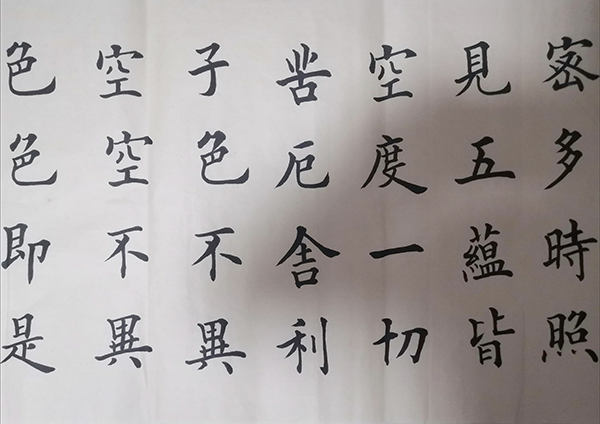 密多時照
見五蘊皆
空度一切
苦厄舍利
子色不異
空空不異
色色即是